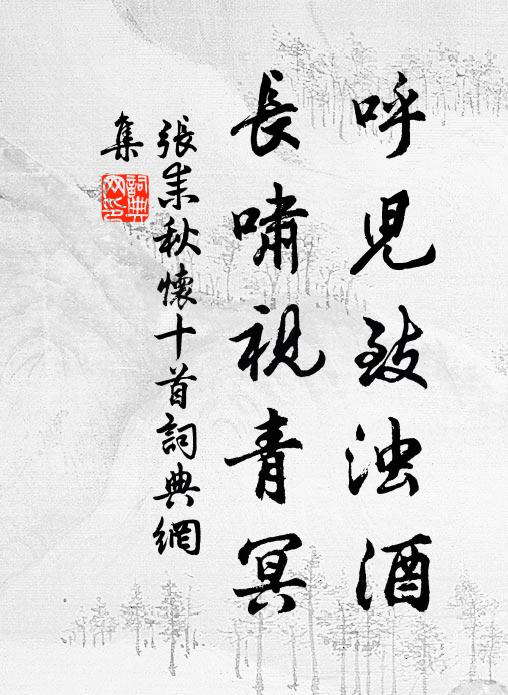 呼児致浊酒
長嘯視青冥
張耒秋懷十首詞典網
集
詞典
网印